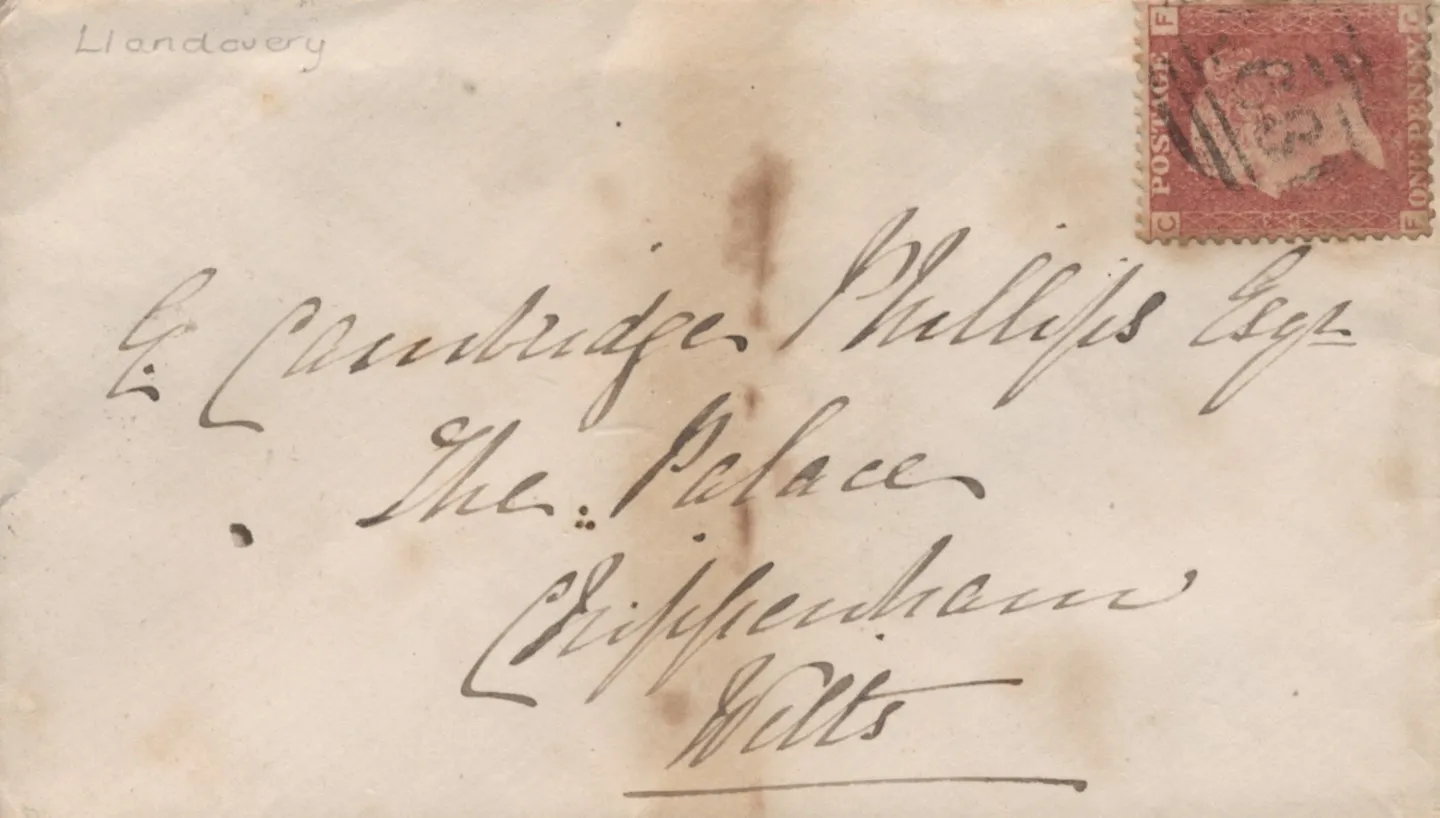 Llandovery
F C
POSTAGE
ONE PENNY
C F
E. Cambridge Phillips Esqr
The Palace
Chippenham
Wilts